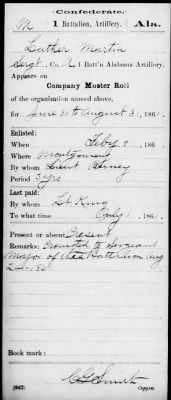 (Confederate.)
M 1 Battalion, Artillery. Ala.
Luther Martin
Sergt., Co. A 1 Batt'n Alabama Artillery.
Appears on
Company Muster Roll
of the organization named above,
for June 30 to August 31, 1861.
Enlisted:
When Feby 9, 186 .
Where Montgomery
By whom Lieut
Period 3 yrs
Last paid:
By whom Lt King
To what time 1, 1861.
Present or absent Present
Remarks: Promoted to Sergeant
Major of the Battalion Aug
Book mark:
(642) Copyist.